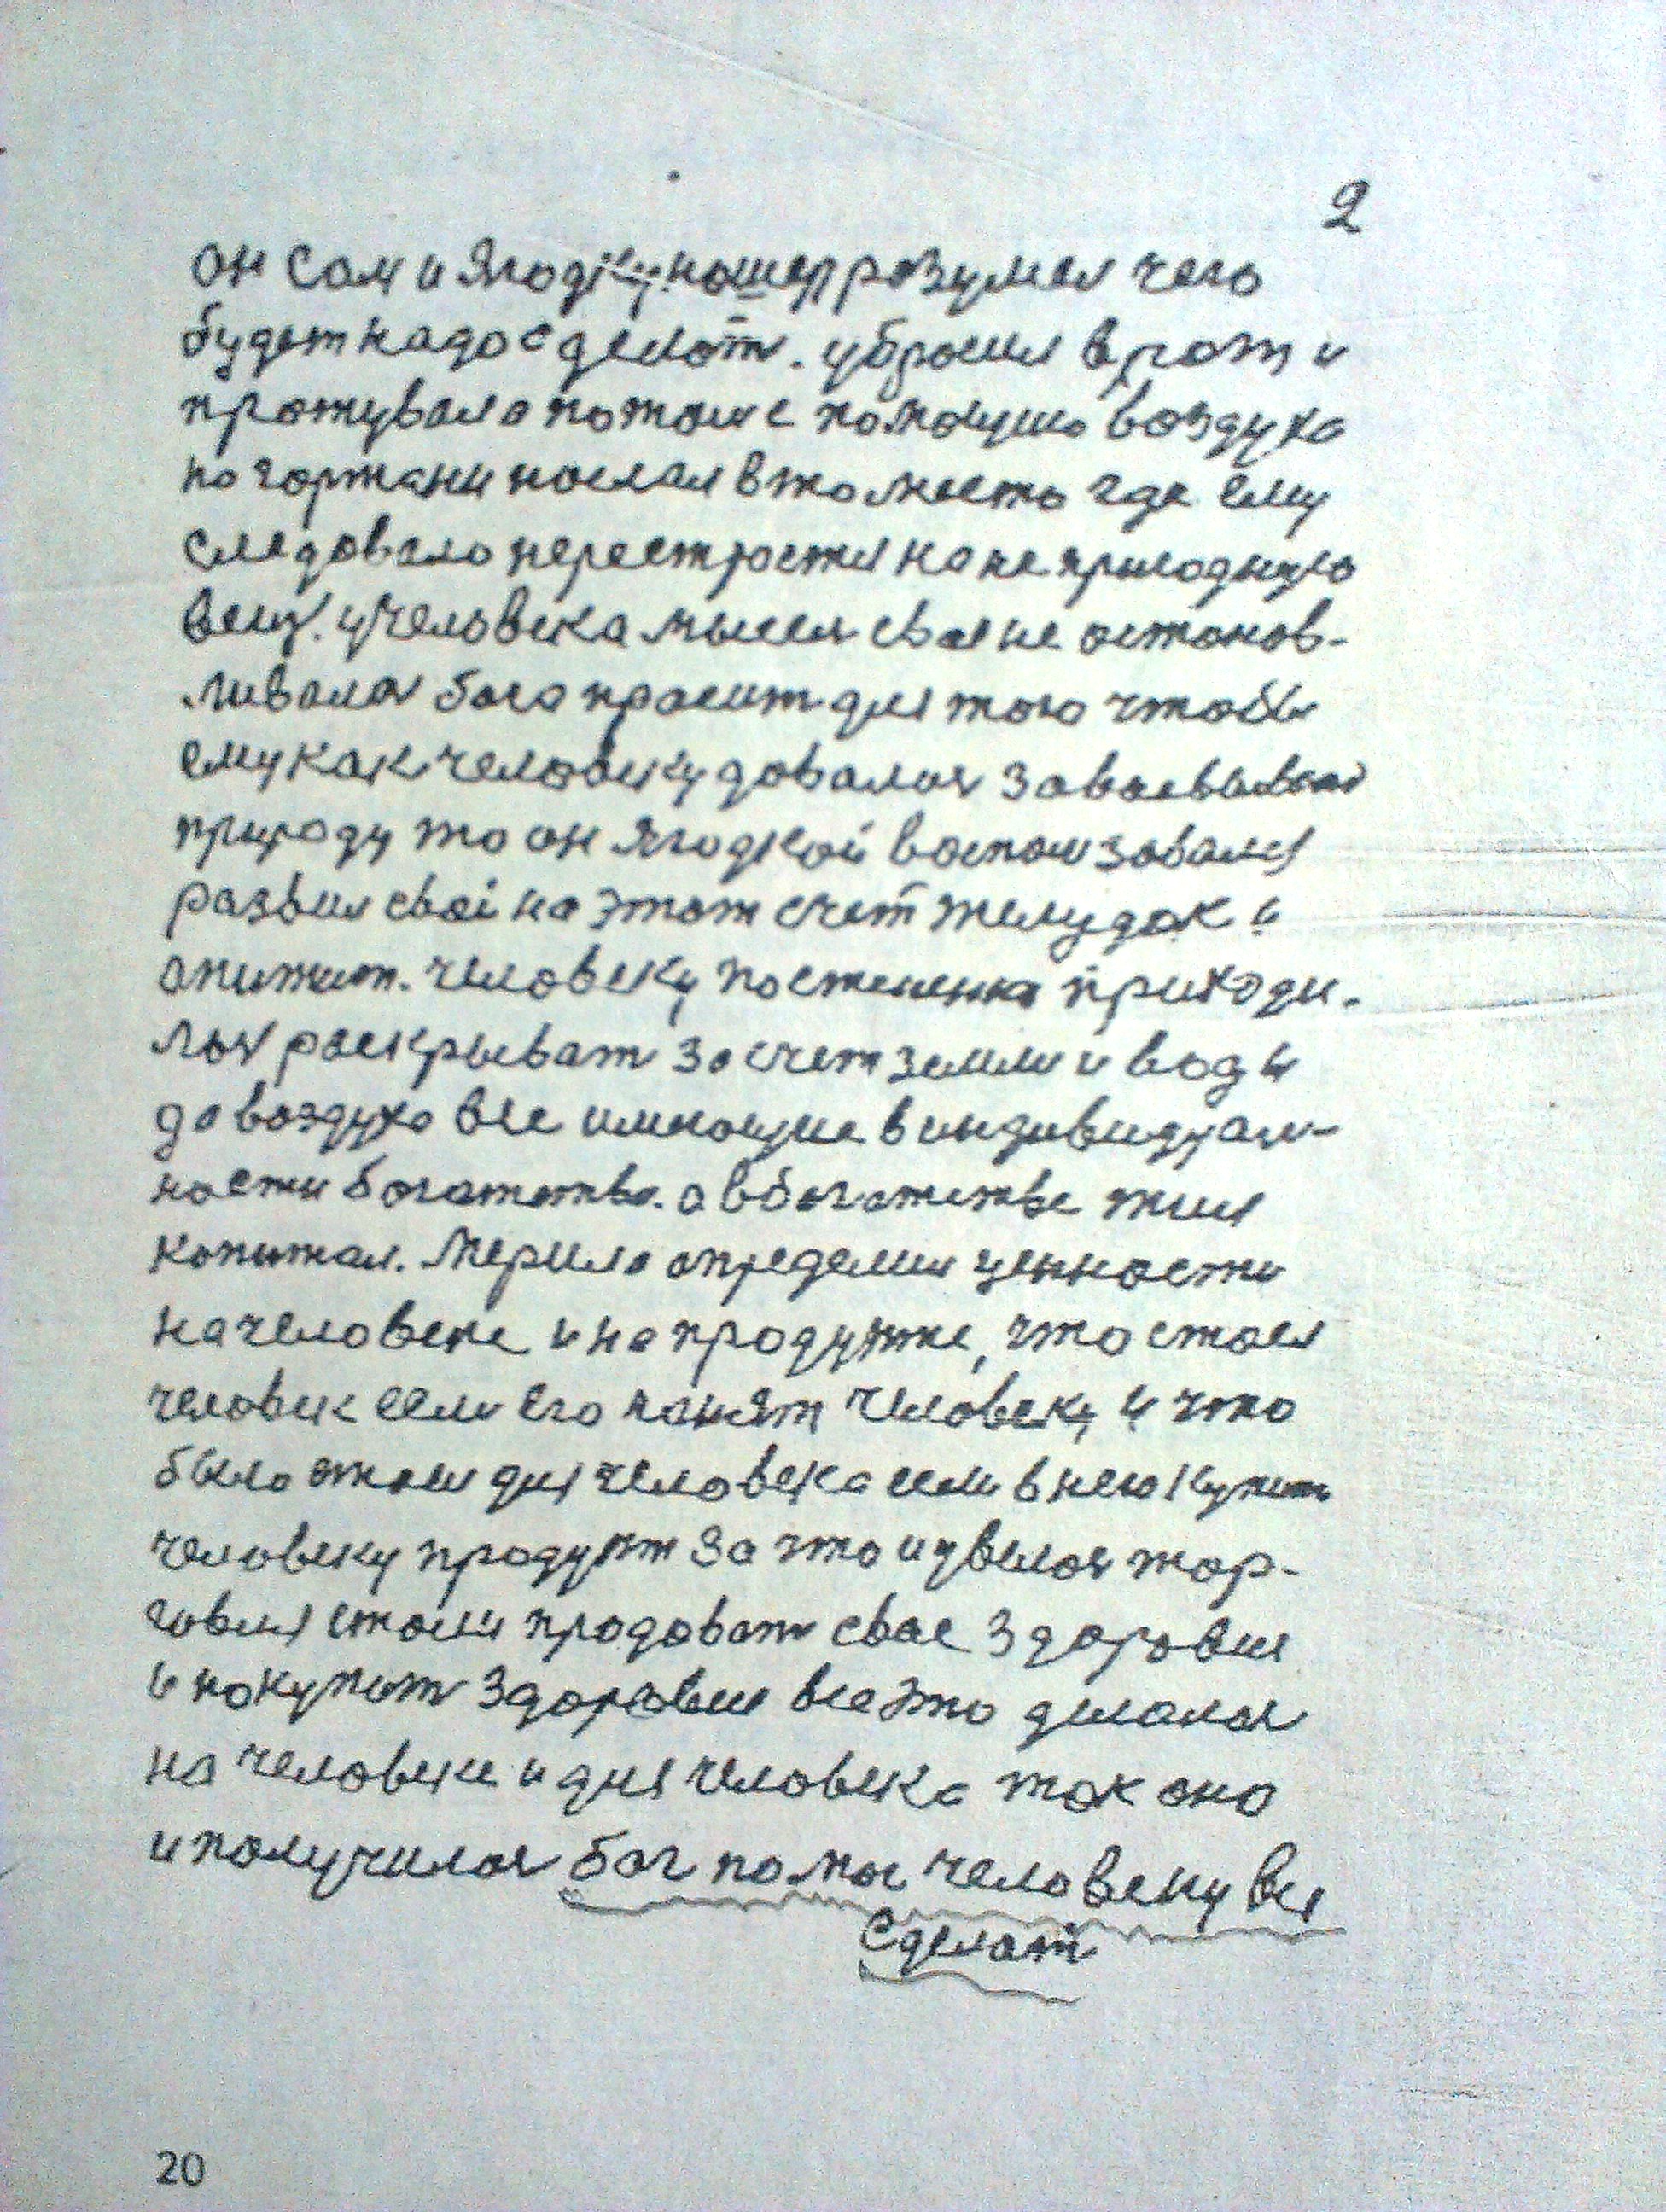 2
он сам и Ягодку нашел розумел чего
будет надо сделат. уброшил в рот и
прожувала потом с помощию воздуха
по горжани послал в то место где ему
следовало переестростия на не пригодную
вещ. учеловека мысля свое не останов-
ливалас бога просит для того чтобы
ему как человеку довалос завоевыват
природу то он Ягодкой воспользовался
развил свой на этот счет желудок и
апитит. человеку постепенна приходи-
лос раскрыват за счет земли и воды
да воздуха все имеющие в индивидуал-
ности богатства. а в богатстве жил
копитал. Мерила определил ценности
на человеке и на продукте, что стоел
человек если его нанят человеку и что
было этому для человека если в него купит
человеку продукт за что и увелос тор-
говля стали продоват свое здоровие
и покупат здоровие все это делалос
на человеке и для человека так оно
и получилос бог помог человеку все
сделат
20